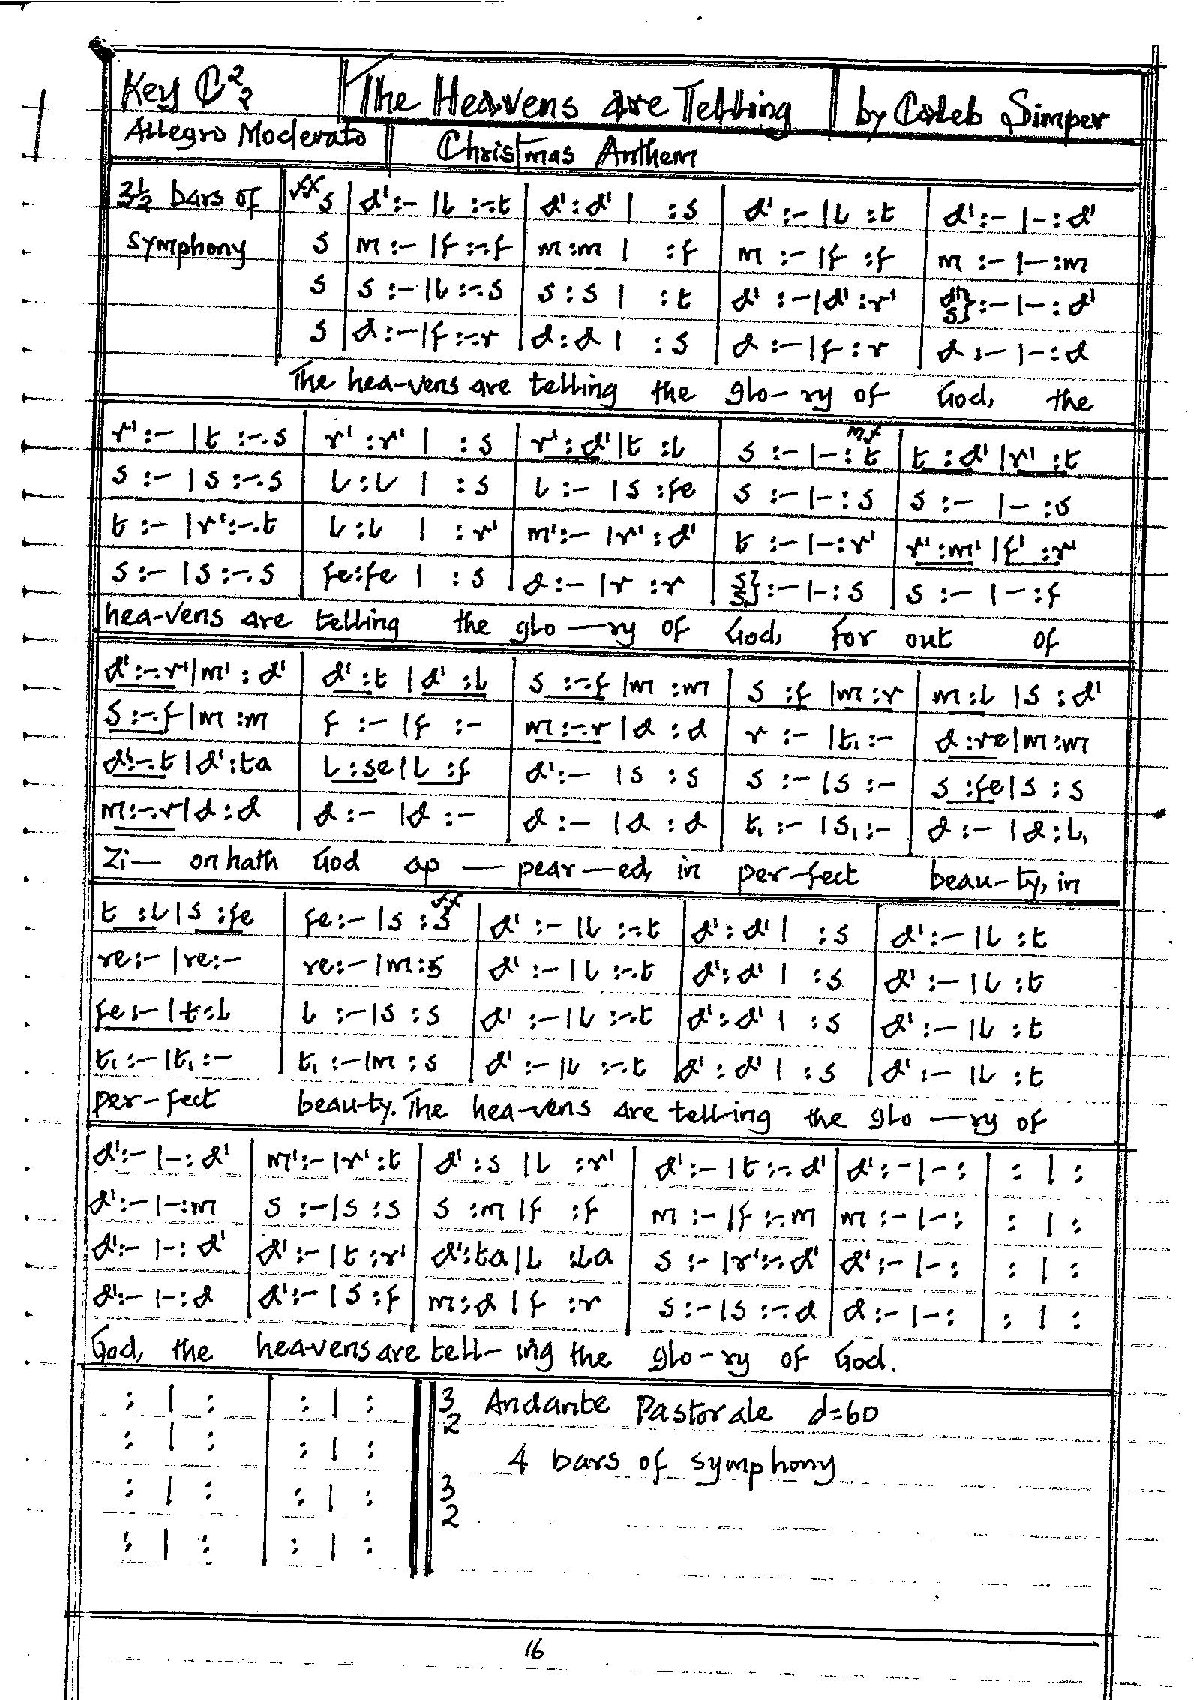 Key C 2/2 The Heavens are Telling by Caleb Simper
Allegro Moderato Christmas Anthem
3½ bars of ff s | d' :- | l :-.t | d' : d' | : s | d' :- | l : t | d' :- | - : d'
symphony s | m :- | f :-.f | m : m | : f | m :- | f : f | m :- | - : m
s | s :- | l :-.s | s : s | : t | d' :- | d' : r' | d' s } :- | - : d'
s | d :- | f :-.r | d : d | : s | d :- | f : r | d :- | - : d
The hea-vens are telling the glo-ry of God, the
r' :- | t :-.s | r' : r' | : s | r' : d' | t : l | s :- | - : t mf | t : d' | r' : t
s :- | s :-.s | l : l | : s | l :- | s : fe | s :- | - : s | s :- | - : s
t :- | r' :-.t | l : l | : r' | m' :- | r' : d' | t :- | - : r' | r' : m' | f' : r'
s :- | s :-.s | fe : fe | : s | d :- | r : r | s s } :- | - : s | s :- | - : f
hea-vens are telling the glo—ry of God, for out of
d' :-.r' | m' : d' | d' : t | d' : l | s :-.f | m : m | s : f | m : r | m : l | s : d'
s :-.f | m : m | f :- | f :- | m :-.r | d : d | r :- | t₁ :- | d : re | m : m
d' :-.t | d' : ta | l : se | l : f | d' :- | s : s | s :- | s :- | s : fe | s : s
m :-.r | d : d | d :- | d :- | d :- | d : d | t₁ :- | s₁ :- | d :- | d : l₁
Zi— on hath God ap — pear —ed, in per-fect beau-ty, in
t : l | s : fe | fe :- | s : s ff | d' :- | l :-.t | d' : d' | : s | d' :- | l : t
re :- | re :- | re :- | m : s | d' :- | l :-.t | d' : d' | : s | d' :- | l : t
fe :- | t : l | l :- | s : s | d' :- | l :-.t | d' : d' | : s | d' :- | l : t
t₁ :- | t₁ :- | t₁ :- | m : s | d' :- | l :-.t | d' : d' | : s | d' :- | l : t
per-fect beauty. The hea-vens are tell-ing the glo —ry of
d' :- | - : d' | m' :- | r' : t | d' : s | l : r' | d' :- | t :-.d' | d' :- | - : | : | :
d' :- | - : m | s :- | s : s | s : m | f : f | m :- | f :-.m | m :- | - : | : | :
d' :- | - : d' | d' :- | t : r' | d' : ta | l : la | s :- | r' :-.d' | d' :- | - : | : | :
d' :- | - : d | d' :- | s : f | m : d | f : r | s :- | s :-.d | d :- | - : | : | :
God, the heavens are tell- ing the glo-ry of God.
: | : | : | : 3/2 Andante Pastorale d=60
: | : | : | : 4 bars of symphony
: | : | : | : 3/2
: | : | : | :
16